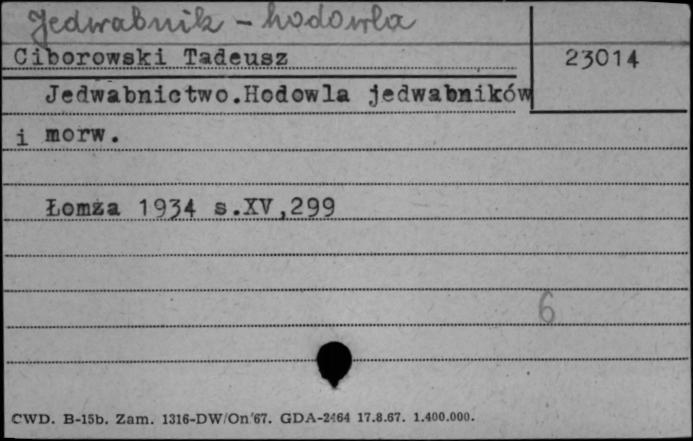 Jedwabnik - hodowla
Ciborowski Tadeusz 23014
Jedwabnictwo.Hodowla jedwabników
i morw.
Łomża 1934 s.XV,299
6
CWD. B-15b. Zam. 1316-DW/On/67. GDA-2464 17.8.67. 1.400.000.